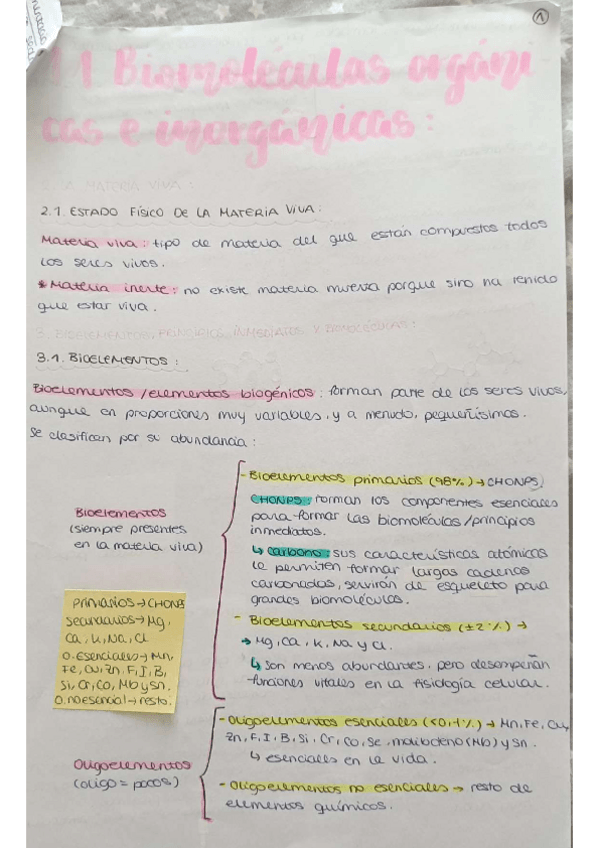 1
1.1 Biomoléculas orgáni
cas e inorgánicas:
2. LA MATERIA VIVA:
2.1. ESTADO FÍSICO DE LA MATERIA VIVA:
Materia viva: tipo de materia del que están compuestos todos
los seres vivos.
*Materia inerte: no existe materia muerta porque sino ha tenido
que estar viva.
3. BIOELEMENTOS, PRINCIPIOS INMEDIATOS Y BIOMOLÉCULAS:
3.1. BIOELEMENTOS:
Bioelementos/elementos biogénicos: forman parte de los seres vivos,
aunque en proporciones muy variables, y a menudo, pequeñísimos.
Se clasifican por su abundancia:
Bioelementos
(siempre presentes
en la materia viva)
-Bioelementos primarios (98%)→CHONPS,
CHONPS: forman los componentes esenciales
para formar las biomoléculas/principios
inmediatos.
↳ carbono: sus características atómicas
le permiten formar largas cadenas
carbonadas, servirán de esqueleto para
grandes biomoléculas.
- Bioelementos secundarios (±2%)→
→ Mg, Ca, K, Na y Cl.
↳ son menos abundantes, pero desempeñan
funciones vitales en la fisiología celular.
primarios→CHONPS
secundarios→Mg,
Ca, K, Na, Cl
O. Esenciales→Mn,
Fe, Cu, Zn, F, I, B,
Si, Cr, Co, Mb y Sn.
O. no esencial→resto.
Oligoelementos
(oligo = pocos)
-Oligoelementos esenciales (<0,1%)→Mn, Fe, Cu,
Zn, F, I, B, Si, Cr, Co, Se, molibdeno (Mb) y Sn.
↳ esenciales en la vida.
-Oligoelementos no esenciales→ resto de
elementos químicos.